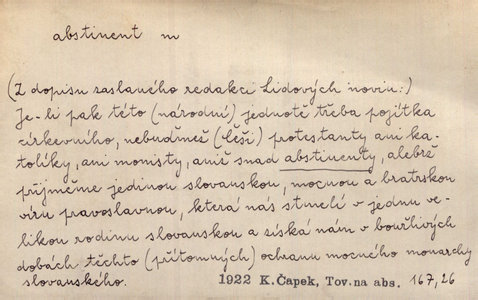 abstinent m
(Z dopisu zaslaného redakci Lidových novin:)
Je-li pak této (národní) jednotě třeba pojítka
církevního, nebuďmež (Češi) protestanty ani ka-
tolíky, ani monisty, aniž snad abstinenty, alebrž
přijměme jedinou slovanskou, mocnou a bratrskou
víru pravoslavnou, která nás stmelí v jednu ve-
likou rodinu slovanskou a získá nám v bouřlivých
dobách těchto (přítomných) ochranu mocného monarchy
slovanského.
1922 K.Čapek, Tov.na abs. 167,26